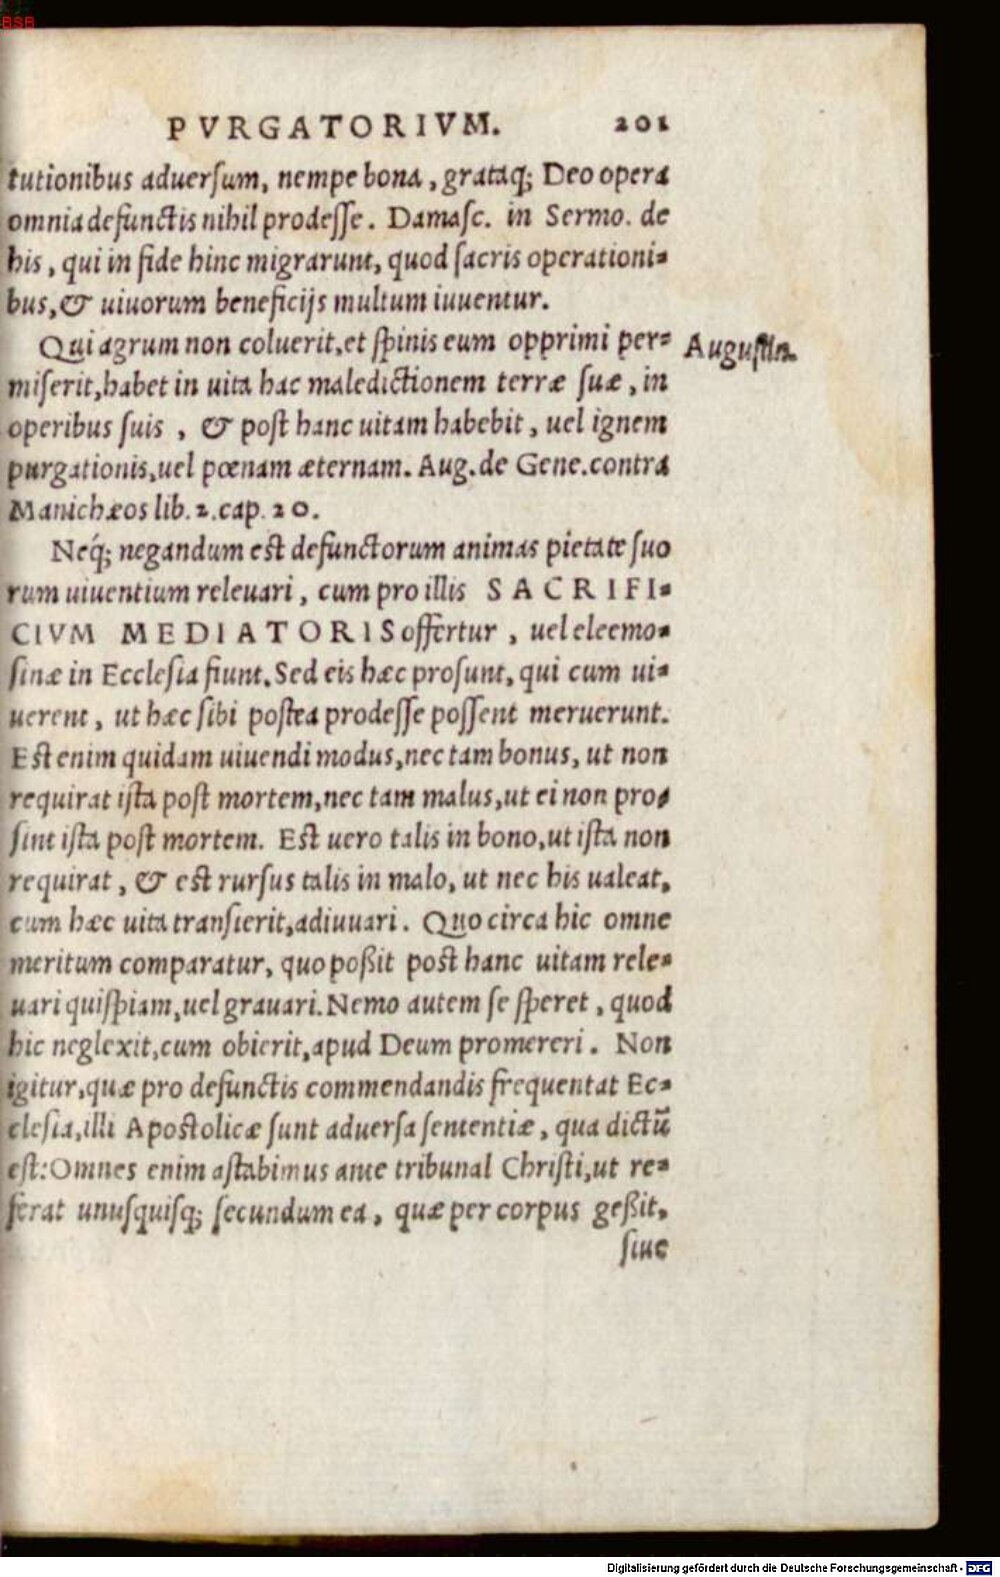 BSB
PVRGATORIVM. 201
tutionibus aduersum, nempe bona, grataq; Deo opera
omnia defunctis nihil prodesse. Damasc. in Sermo. de
his, qui in fide hinc migrarunt, quod sacris operationi-
bus, & uiuorum beneficijs multum iuuentur.
Qui agrum non coluerit, et spinis eum opprimi per-
Augustin.
miserit, habet in uita hac maledictionem terræ suæ, in
operibus suis, & post hanc uitam habebit, uel ignem
purgationis, uel pœnam æternam. Aug. de Gene. contra
Manichæos lib. 2. cap. 20.
Neq́; negandum est defunctorum animas pietate suo
rum uiuentium releuari, cum pro illis SACRIFI-
CIVM MEDIATORIS offertur, uel eleemo-
sinæ in Ecclesia fiunt. Sed eis hæc prosunt, qui cum ui-
uerent, ut hæc sibi postea prodesse possent meruerunt.
Est enim quidam uiuendi modus, nec tam bonus, ut non
requirat ista post mortem, nec tam malus, ut ei non pro-
sint ista post mortem. Est uero talis in bono, ut ista non
requirat, & est rursus talis in malo, ut nec his ualeat,
cum hæc uita transierit, adiuuari. Quo circa hic omne
meritum comparatur, quo poßit post hanc uitam rele-
uari quispiam, uel grauari. Nemo autem se speret, quod
hic neglexit, cum obierit, apud Deum promereri. Non
igitur, quæ pro defunctis commendandis frequentat Ec-
clesia, illi Apostolicæ sunt aduersa sententiæ, qua dictũ
est: Omnes enim astabimus ante tribunal Christi, ut re-
ferat unusquisq; secundum ea, quæ per corpus geßit,
siue
Digitalisierung gefördert durch die Deutsche Forschungsgemeinschaft - DFG